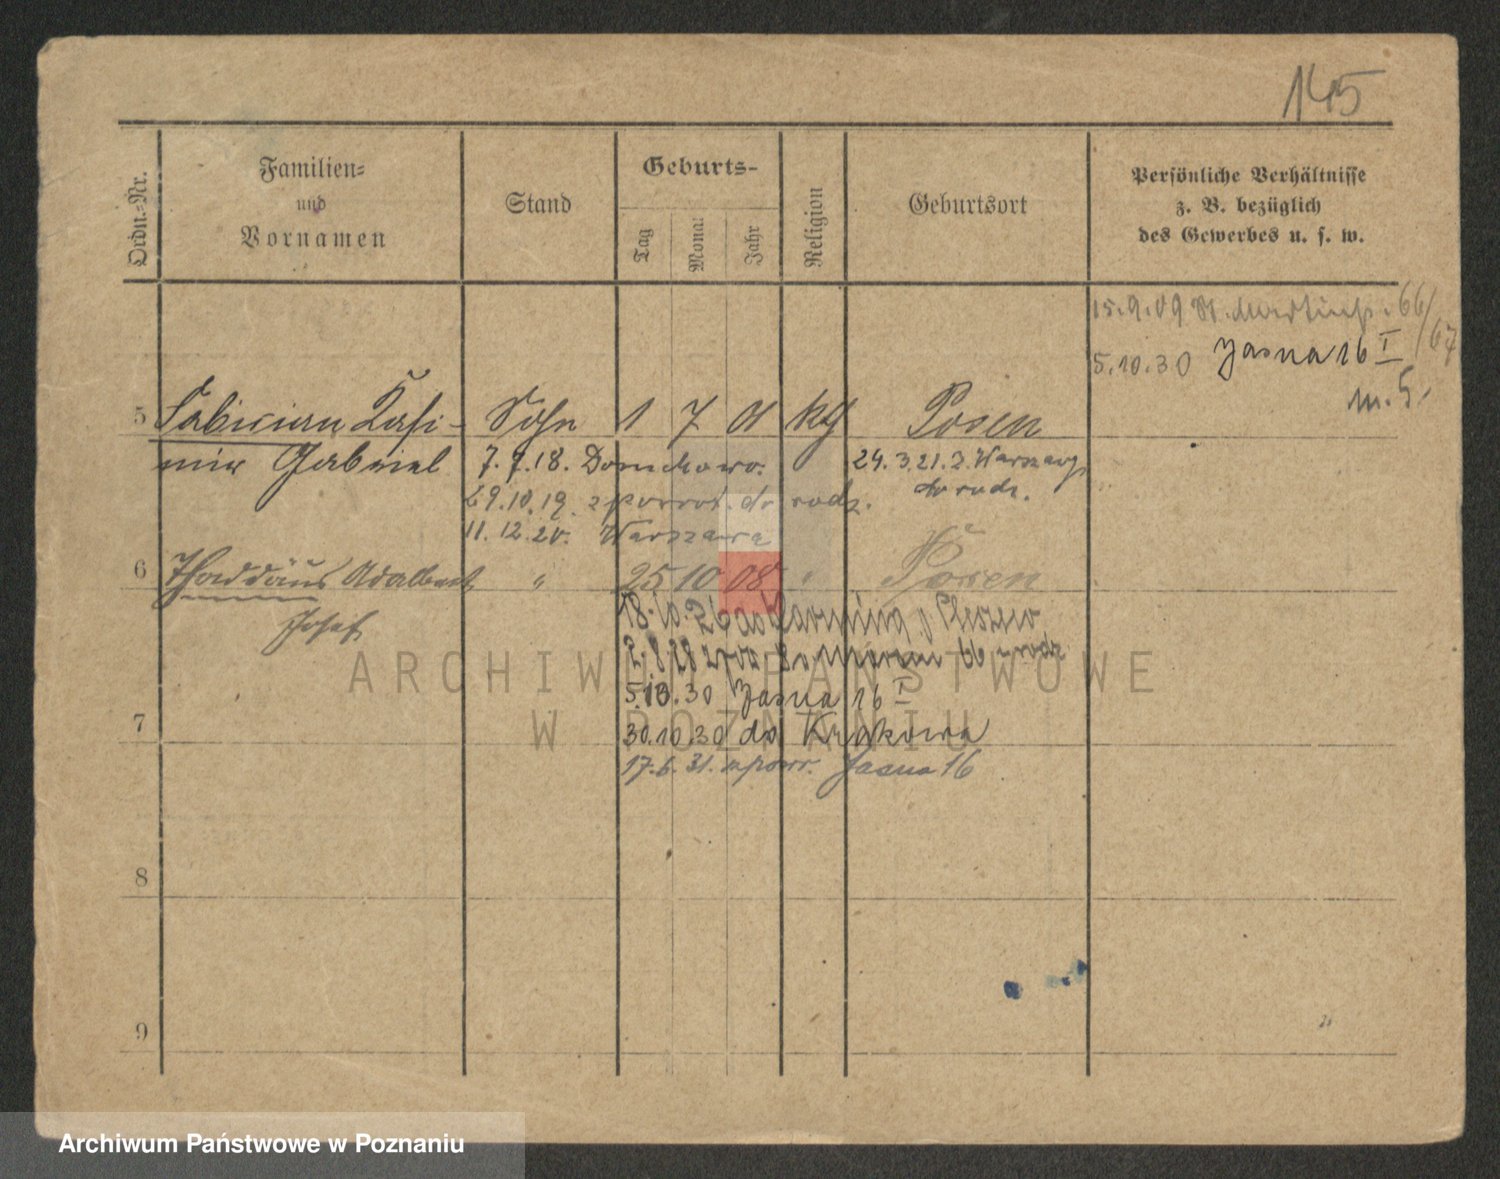 145
Ordn.-Nr.
Familien-
und
Vornamen
Stand
Geburts-
Tag
Monat
Jahr
Religion
Geburtsort
Persönliche Verhältnisse
z. B. bezüglich
des Gewerbes u. s. w.
15.9.09 St. Martinstr. 66/67
5.10.30 Jasna 16 I
m. 5.
5 Fabician Kasi-
mir Gabriel
Sohn 1 7 01 kg Posen
7.9.18.
24.3.21. z Warszawy
do rodz.
29.10.19. z powrot. do rodz.
11.12.20. Warszawa
6 Thaddäus Adalbert
Josef
" 25 10 08 " Posen
18.10.26 do
2.8.28
5.10.30 Jasna 16 I
7
30.10.30 do Krakowa
17.6.31. z powr. Jasna 16
8
9
ARCHIWUM PAŃSTWOWE
W POZNANIU
Archiwum Państwowe w Poznaniu